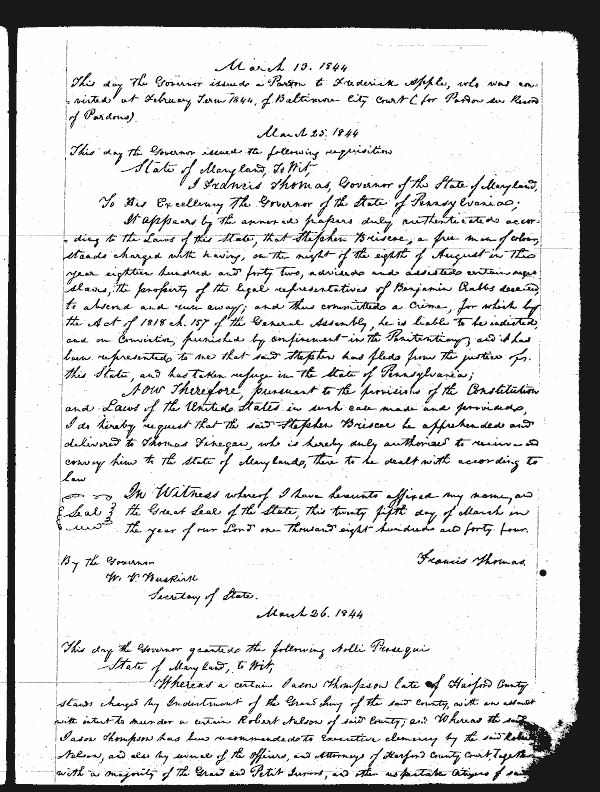 March 13. 1844
This day the Governor issued a Pardon to Frederick Apple, who was con-
-victed at February Term 1844, of Baltimore City Court (for Pardon see Record
of Pardons)
March 25. 1844
This day the Governor issued the following requisition
State of Maryland, To Wit,
I Francis Thomas, Governor of the State of Maryland,
To His Excellency the Governor of the State of Pennsylvania;
It appears by the annexed papers duly authenticated accor-
-ding to the Laws of this State, that Stephen Briscoe, a free man of colour,
stands charged with having, on the night of the eighth of August in the
year eighteen hundred and forty two, advised and assisted certain negro
slaves, the property of the legal representatives of Benjamin Crabbs deceased
to abscond and run away; and thus committed a Crime, for which by
the Act of 1818 ch. 157 of the General Assembly, he is liable to be indicted,
and on Conviction, punished by confinement in the Penitentiary; and it has
been represented to me that said Stephen has fled from the justice of
this State, and has taken refuge in the State of Pennsylvania;
Now Therefore, pursuant to the provisions of the Constitution
and Laws of the United States in such case made and provided,
I do hereby request that the said Stephen Briscoe be apprehended and
delivered to Thomas Finegan, who is hereby duly authorised to receive and
convey him to the State of Maryland, there to be dealt with according to
law
In Witness whereof I have hereunto affixed my name, and
Seal the Great Seal of the State, this twenty fifth day of March in
the year of our Lord one thousand eight hundred and forty four.
By the Governor Francis Thomas.
W. V. Buskirk
Secretary of State.
March 26. 1844
This day the Governor granted the following Nolli Prosequi
State of Maryland, to Wit,
Whereas a certain Jason Thompson late of Harford County
stands charged by Indictment of the Grand Jury of the said County, with an assault
with intent to murder a certain Robert Nelson of said County; and Whereas the said
Jason Thompson has been recommended to Executive clemency by the said Robert
Nelson, and also by several of the Officers, and Attorneys of Harford County Court, together
with a majority of the Grand and Petit Jurors, and other respectable citizens of said